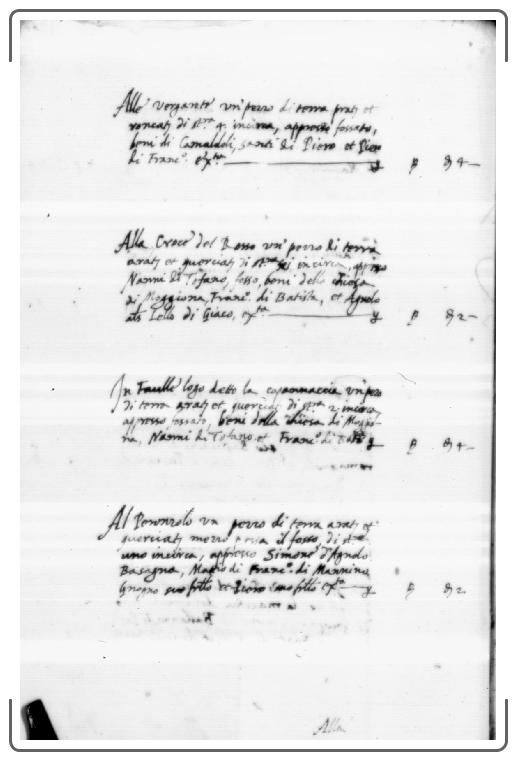 Alle vergante un pezzo di terra prat et
roncat di st.ra 4. incirca, appresso fossato,
beni di Camaldoli, Santi di Piero et Piero
di Franc.o etc.
Alla Croce del Rosso un pezzo di terra
arat et querciat di st.ra sei incirca, appresso
Nanni di Tofano, fosso, beni della chiesa
di Moggiona, Franc.o di Batista, et Agnolo
als Lello di Giaco,
In Faulle logo detto la capannaccia un pezo
di terra arat et querciat di st.ra 2 incirca
appresso fossato, beni della chiesa di Moggio
na, Nanni di Tofano et Franc.o di
Al Peronzolo un pezzo di terra arat et
querciat mezzo il fosso di st.ra
uno incirca, appresso Simone d'Agnolo
Basagna, Matteo di Franc.o di Mannino
suo f.llo et Piero suo f.llo
Alla